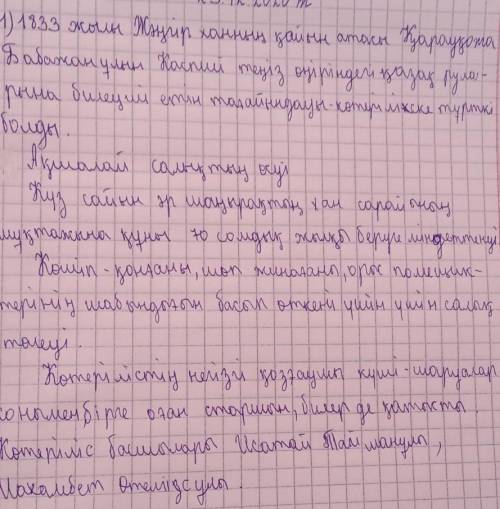 1) 1833 жылы Жәңгір ханның қайын атасы Қарауқожа
Бабажанұлын Каспий теңіз өңіріндегі қазақ рула-
рына билеуші етіп тағайындауы-көтеріліске түрткі
болды.
Ақшалай салықтың өсуі
Күз сайын әр шаңырақтың хан сарайының
мұқтажына құны 70 сомдық жылқы беруге міндеттенуі
Көшіп-қонғаны, шөп жинағаны, орыс помещик-
терінің шабындығын басып өткені үшін үшін салық
төлеуі.
Көтерілістің негізгі қозғаушы күші-шаруалар
сонымен бірге оған старшын, билер де қатысты.
Көтеріліс басшылары Исатай Тайманұлы,
Махамбет Өтемісұлы.